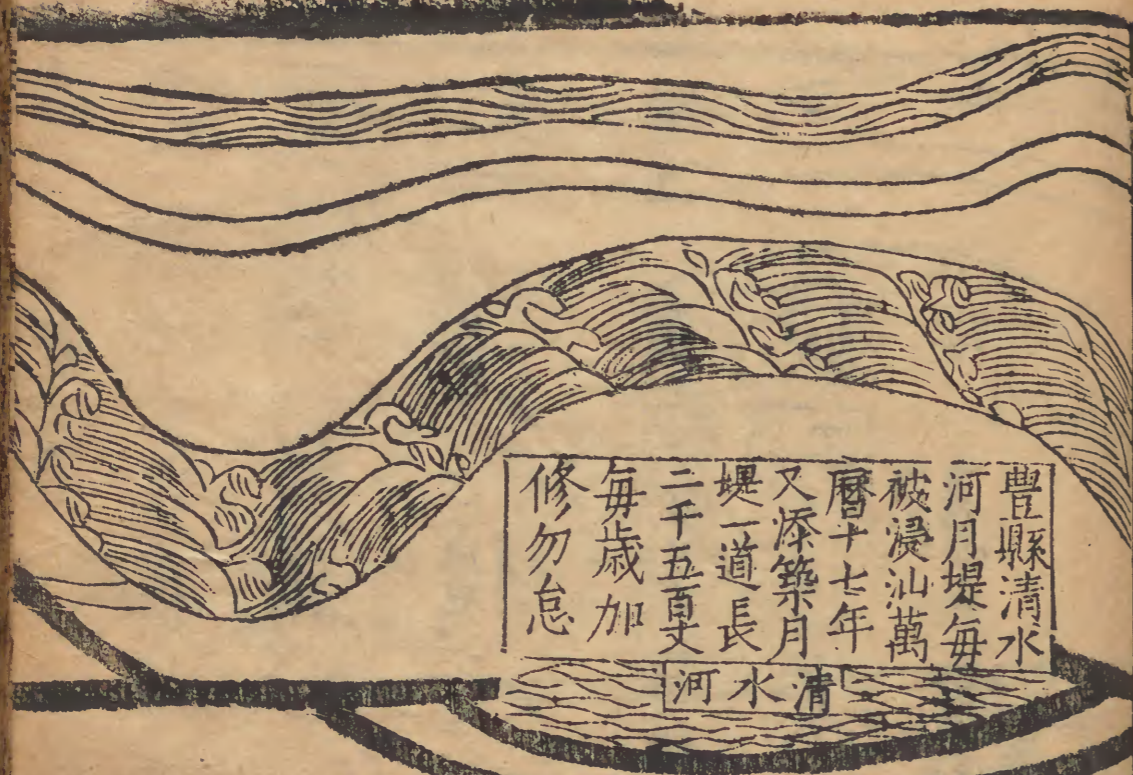 豊縣清水
河月堤每
被浸汕萬
曆十七年
又添築月
堤一道長
二千五百丈
每歳加
修勿怠
清水河